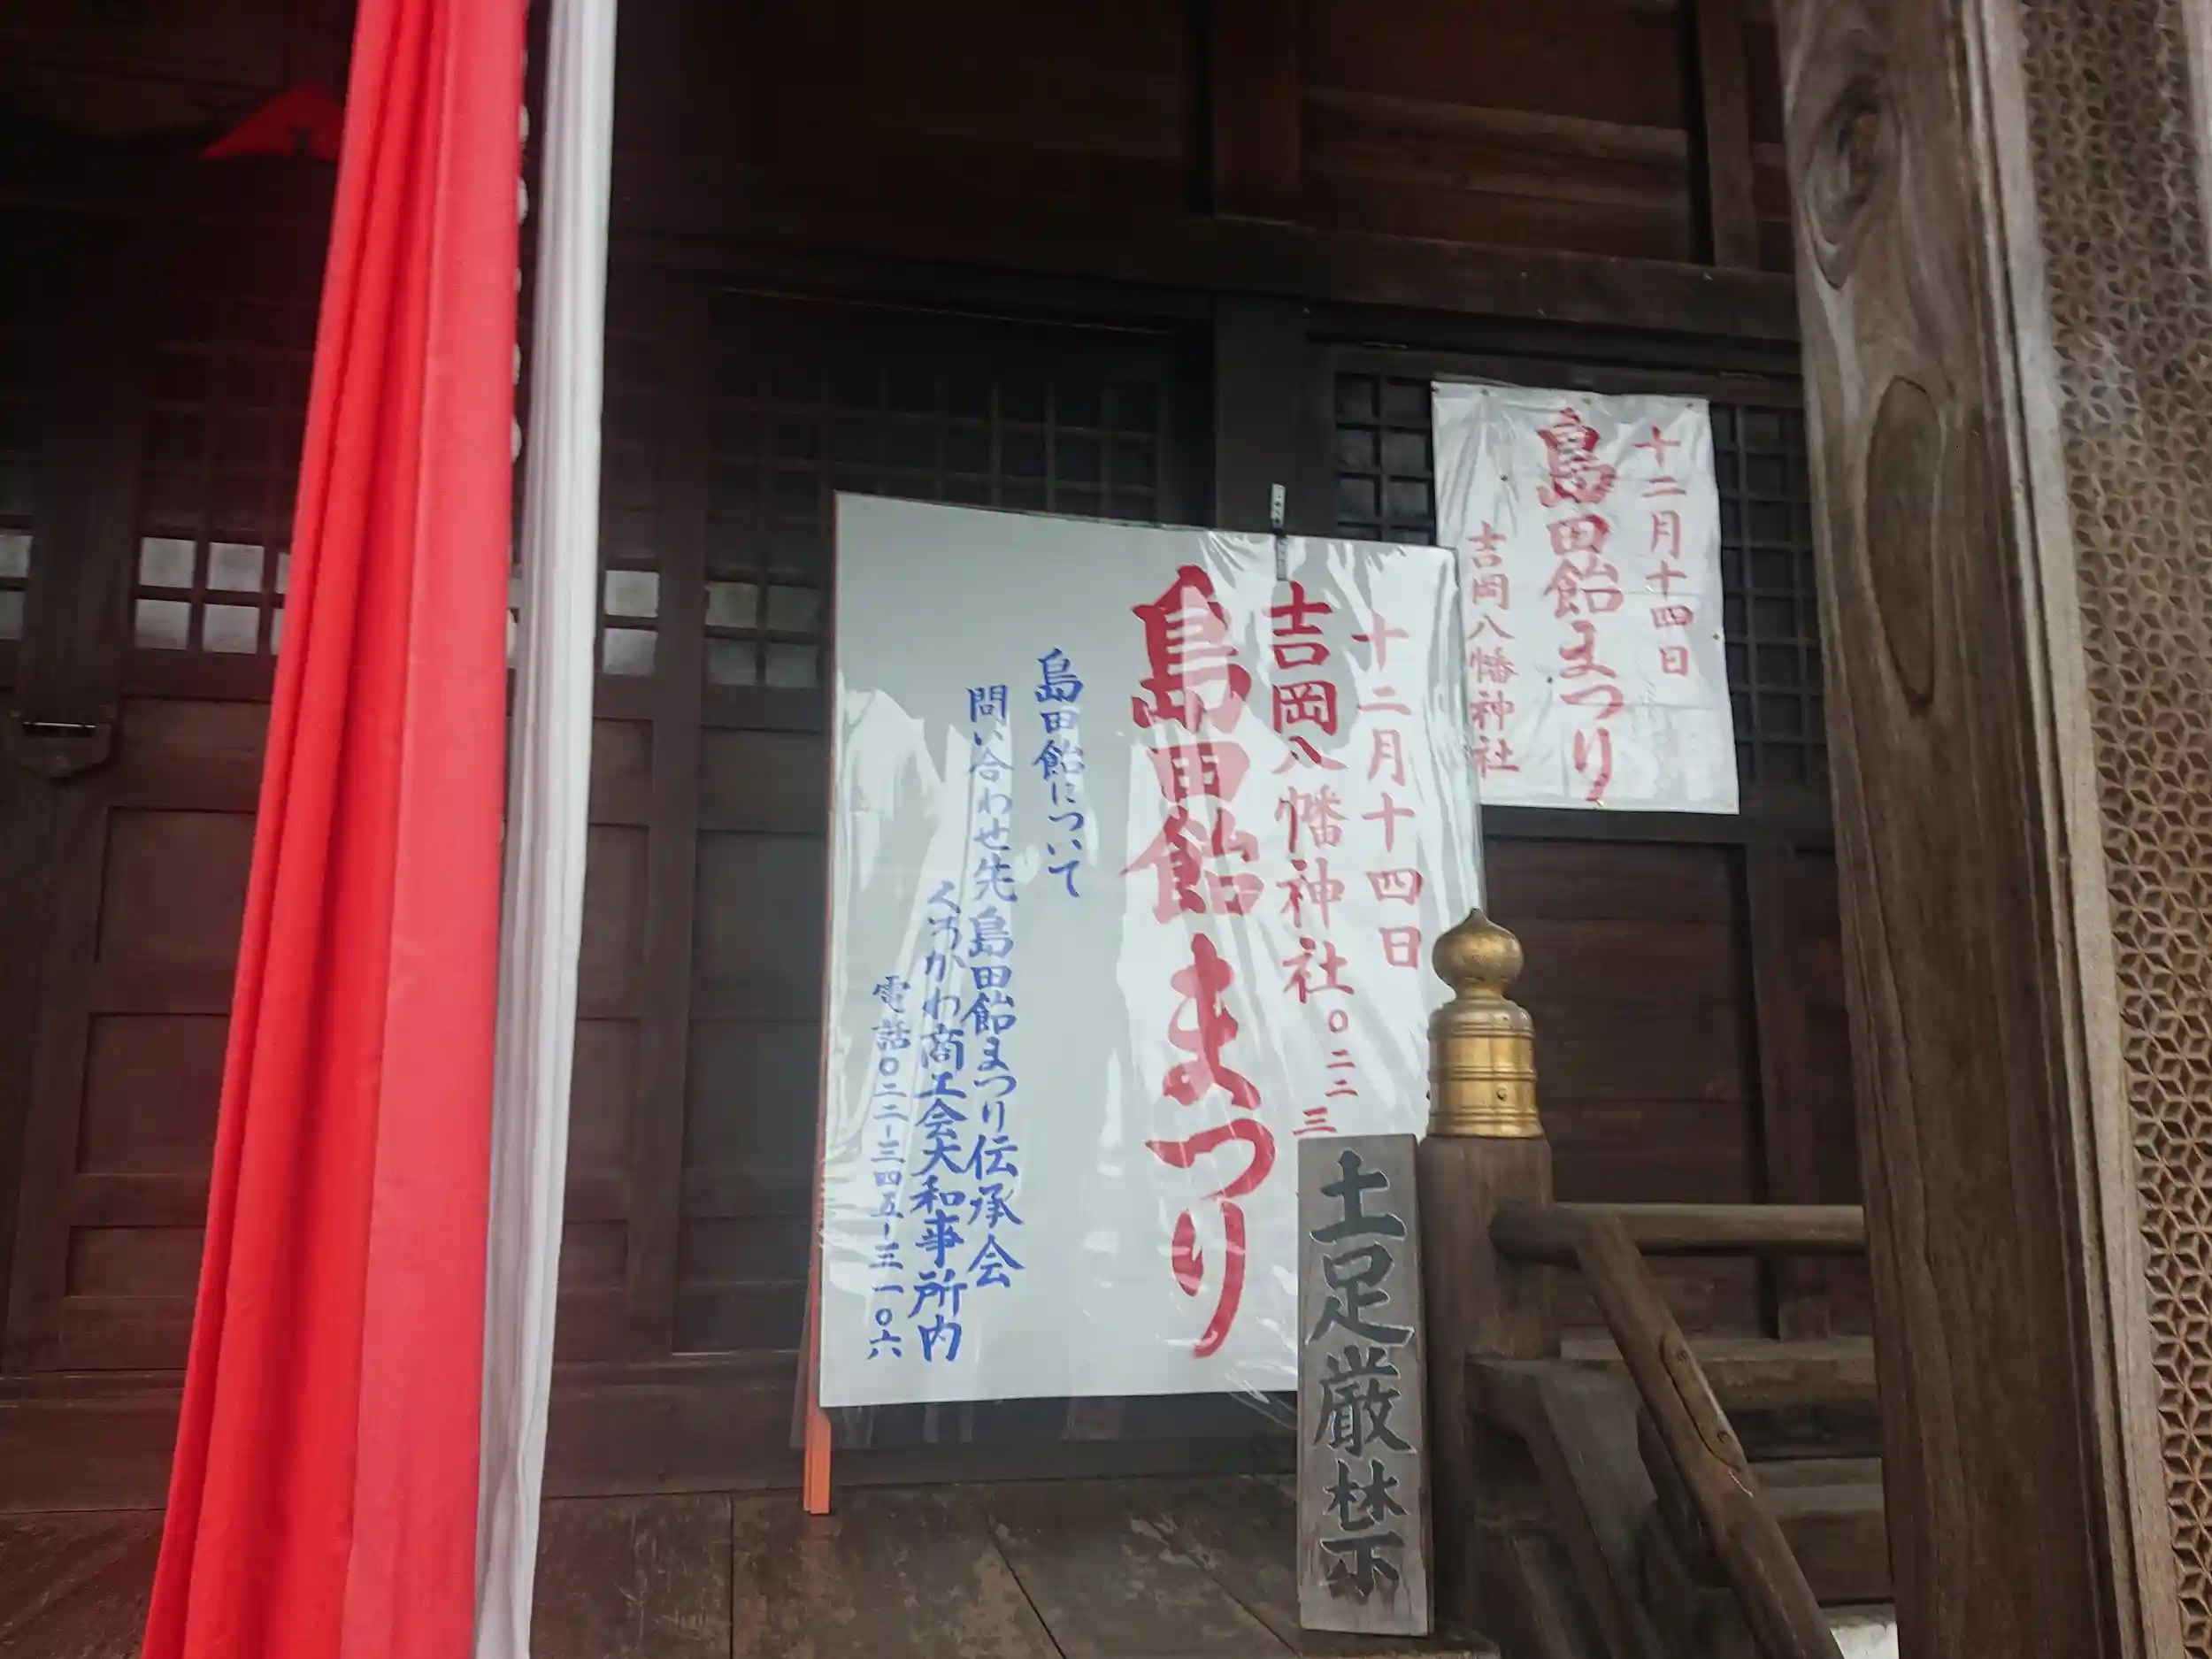 十二月十四日
島田飴まつり
吉岡八幡神社
十二月十四日
吉岡八幡神社〇二二
三
島田飴まつり
島田飴について
問い合わせ先島田飴まつり伝承会
くろかわ商工会大和事務所内
電話〇二二-三四五-三一〇六
土足厳禁